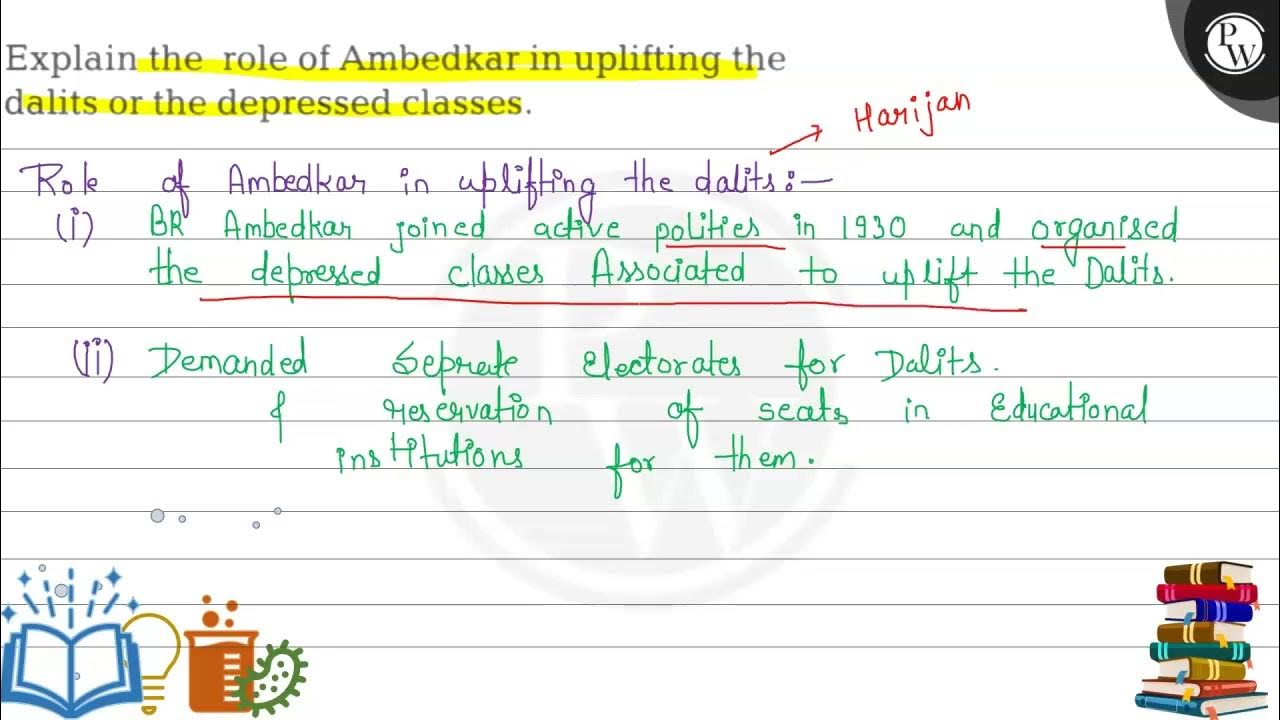 Explain the role of Ambedkar in uplifting the
dalits or the depressed classes.
PW
Harijan
Role of Ambedkar in uplifting the dalits:—
(i) BR Ambedkar joined active polities in 1930 and organised
the depressed classes Associated to uplift the Dalits.
(ii) Demanded Seprate Electorates for Dalits.
& reservation of seats in Educational
institutions for them.